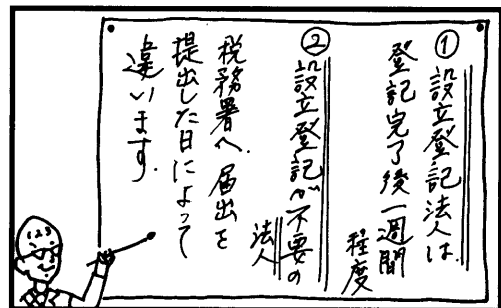 ①設立登記法人は、
登記完了後一週間
程度
②設立登記が不要の
法人
税務署へ届出を
提出した日によって
違います。
123